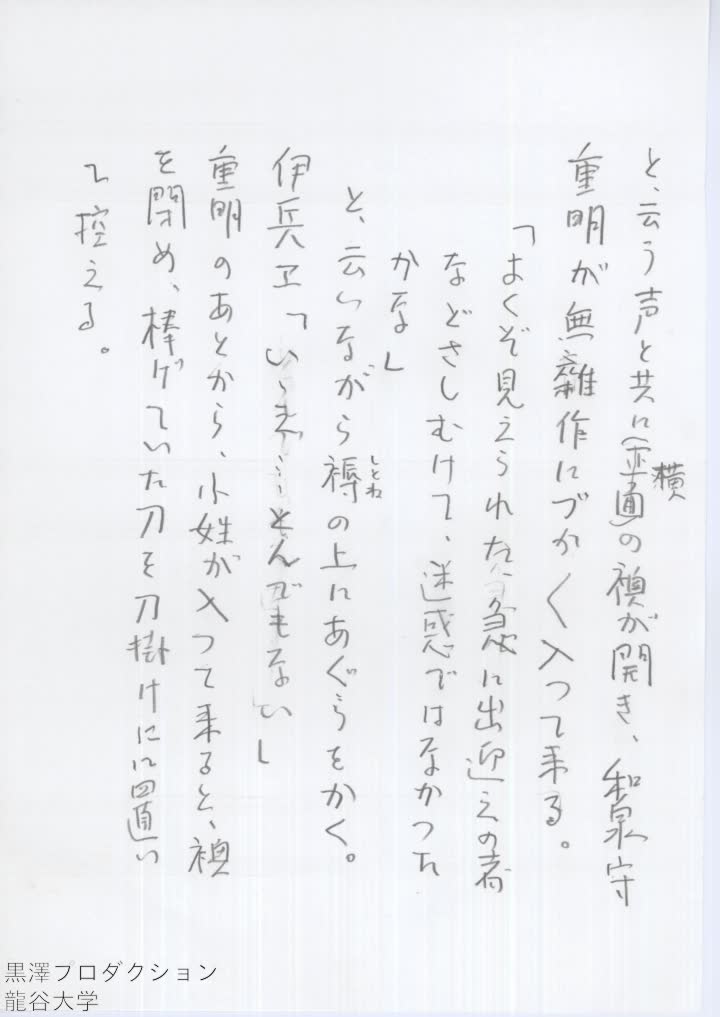 と、云う声と共に(正面)の襖が開き、和泉守
横
重明が無雑作にづか〱入つて来る。
「よくぞ見えられた、急に出迎えの者
などさしむけて、迷惑ではなかつた
かな」
と、云いながら褥の上にあぐらをかく。
しとね
伊兵ヱ「いゝえ…とんでもない」
重明のあとから、小姓が入つて来ると、襖
を閉め、棒げていた刀を刀掛けに置い
て控える。
黒澤プロダクション
龍谷大学